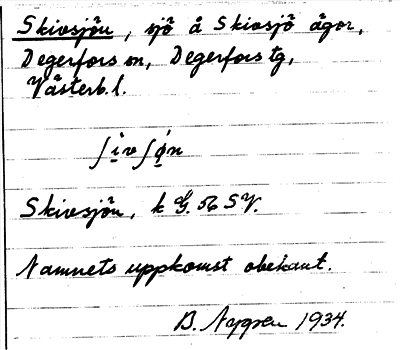 Skivsjön, sjö å Skivsjö ägor,
Degerfors sn, Degerfors tg,
Västerb. l.
ʃivʃön
Skivsjön, k G. SV.
Namnets uppkomst obekant.
B. Nygren 1934.